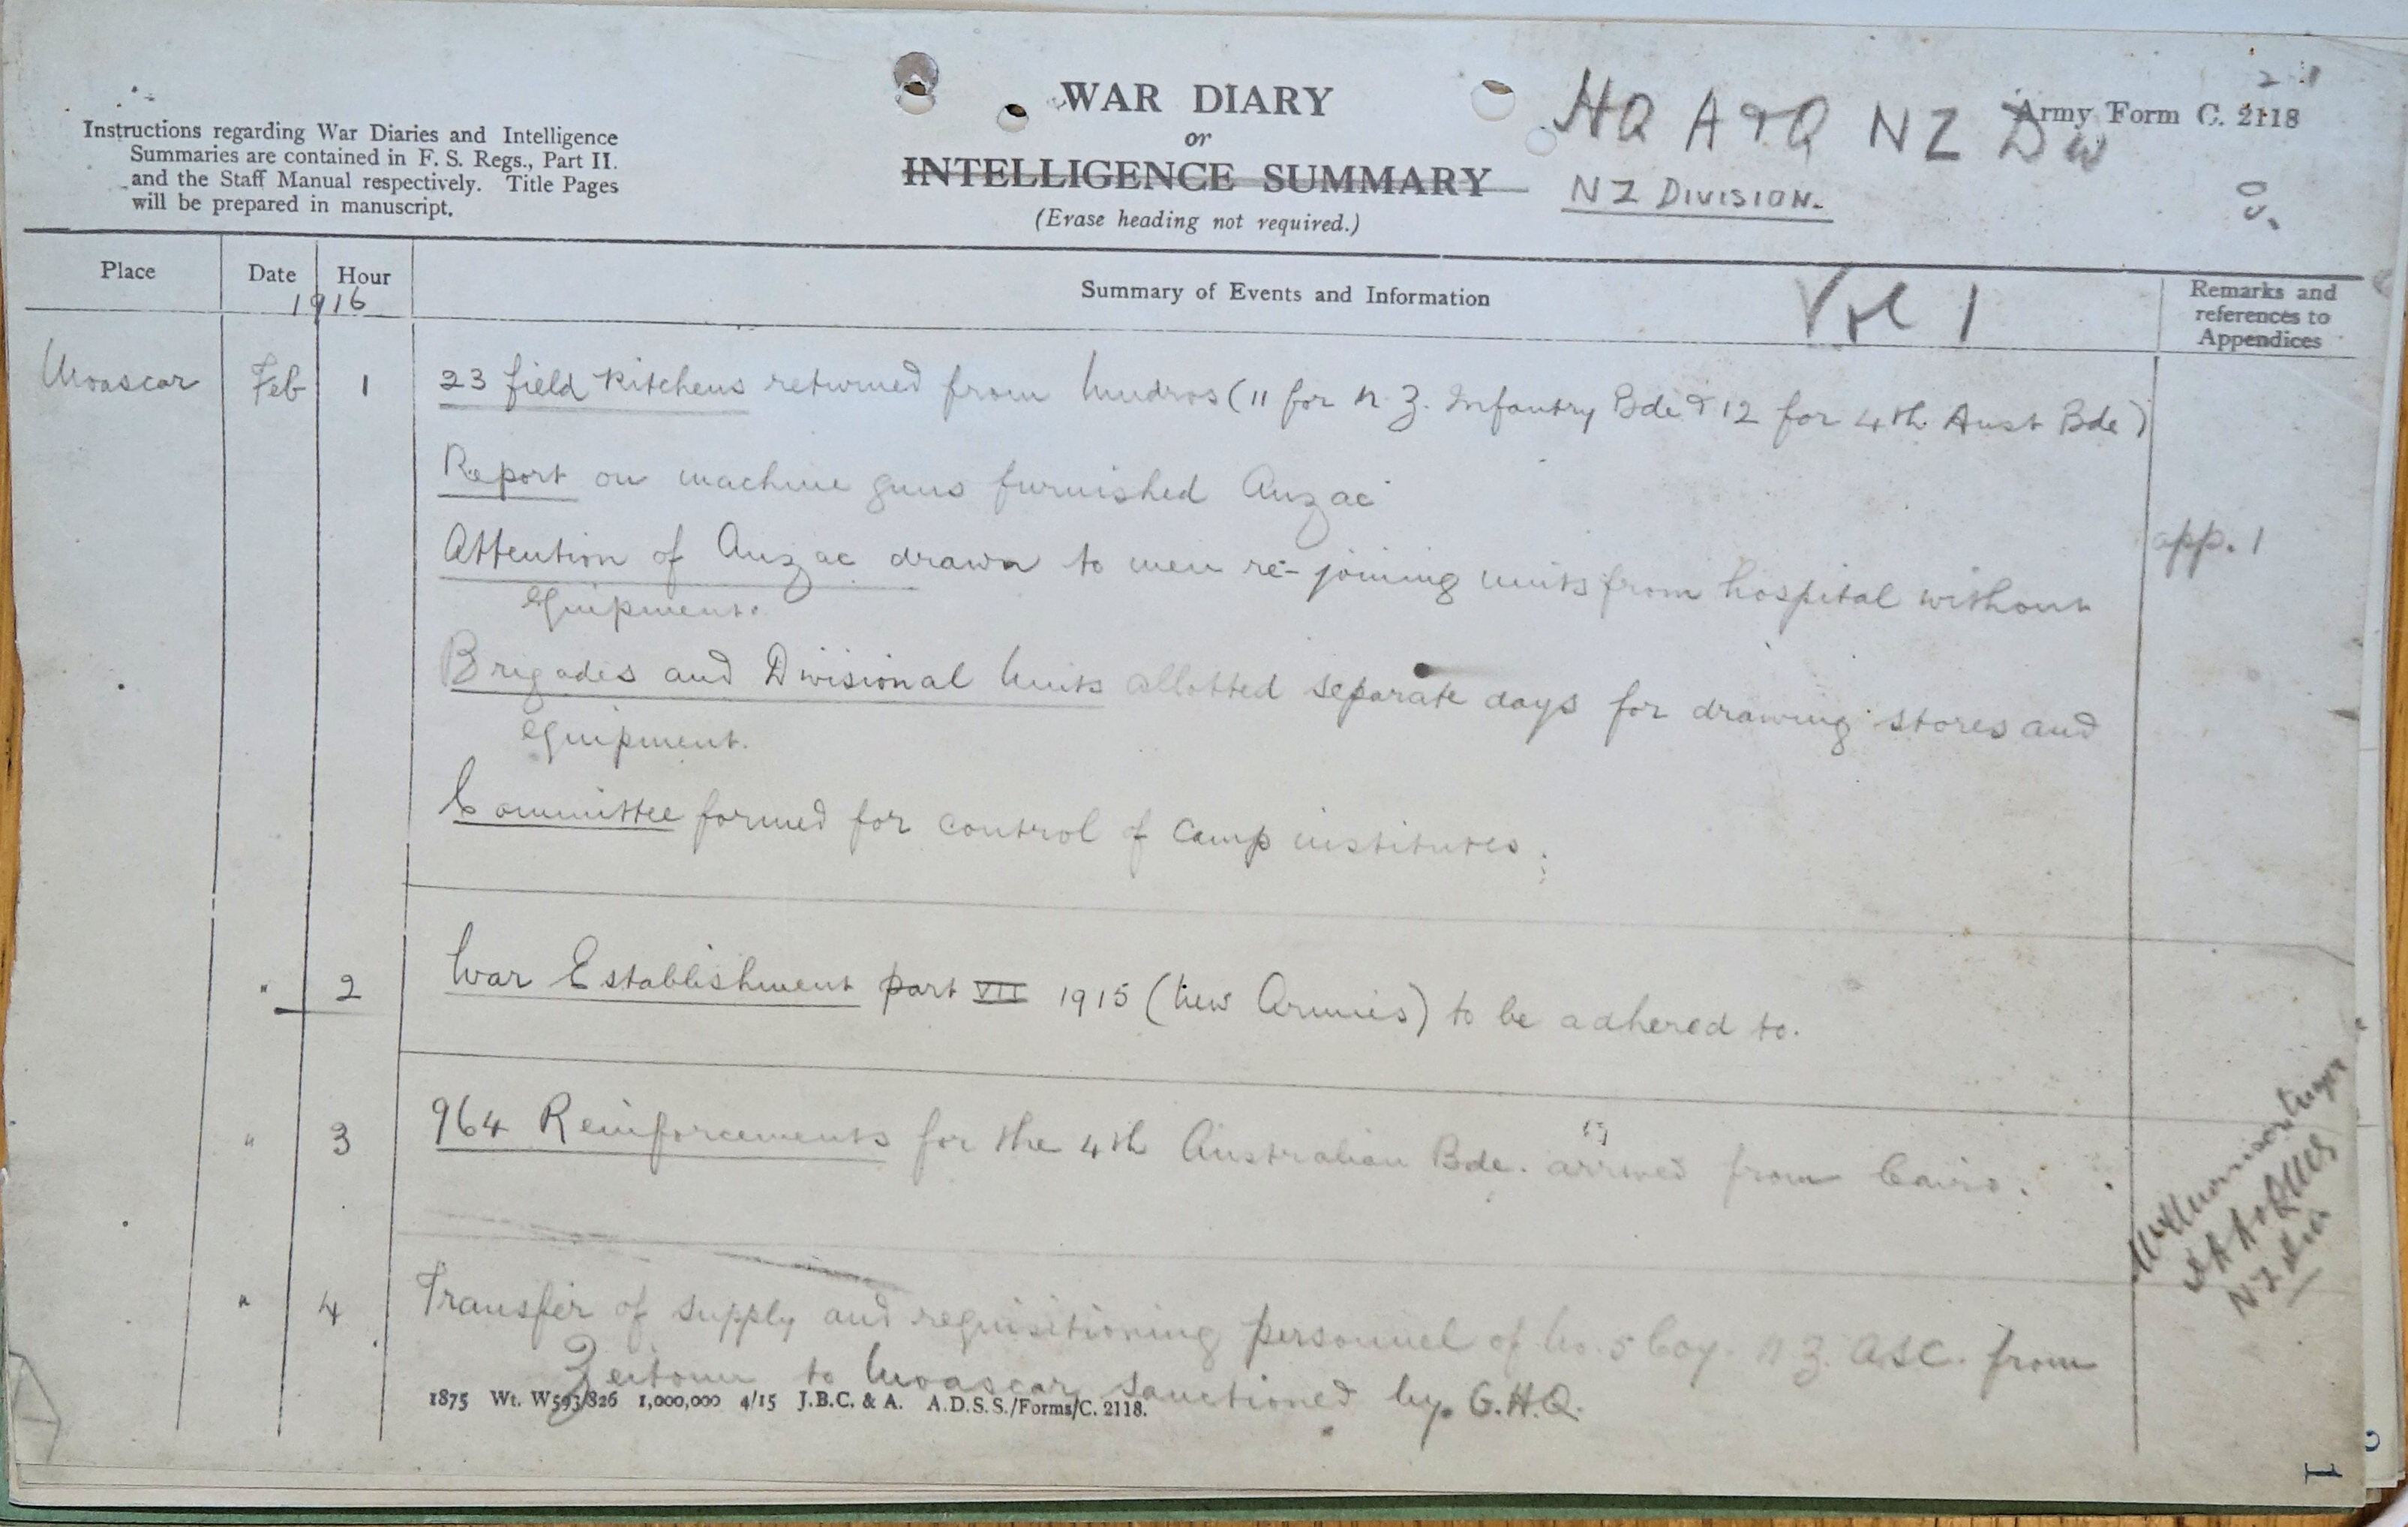 Instructions regarding War Diaries and Intelligence
Summaries are contained in F. S. Regs., Part II.
and the Staff Manual respectively. Title Pages
will be prepared in manuscript.
WAR DIARY
or
INTELLIGENCE SUMMARY
(Erase heading not required.)
HQ A & Q NZ Div
NZ DIVISION.
Army Form C. 2118
Place
Date
Hour
1916
Summary of Events and Information
Vol 1
Remarks and
references to
Appendices
Moascar Feb 1 23 field Kitchens returned from Mudros (11 for N.Z. Infantry Bde & 12 for 4th Aust Bde)
Report on machine guns furnished Anzac
Attention of Anzac drawn to men re-joining units from hospital without
equipment.
app. 1
Brigades and Divisional Units allotted separate days for drawing stores and
equipment.
Committee formed for control of camp institutes.
" 2 War Establishment part VII 1915 (New Armies) to be adhered to.
" 3 964 Reinforcements for the 4th Australian Bde. arrived from Cairo.
" 4 Transfer of supply and requisitioning personnel of No. 5 Coy. N.Z. A.S.C. from
Zeitoun to Moascar sanctioned by G.H.Q.
NZ Div
1875 Wt. W593/826 1,000,000 4/15 J.B.C. & A. A.D.S.S./Forms/C. 2118.
1